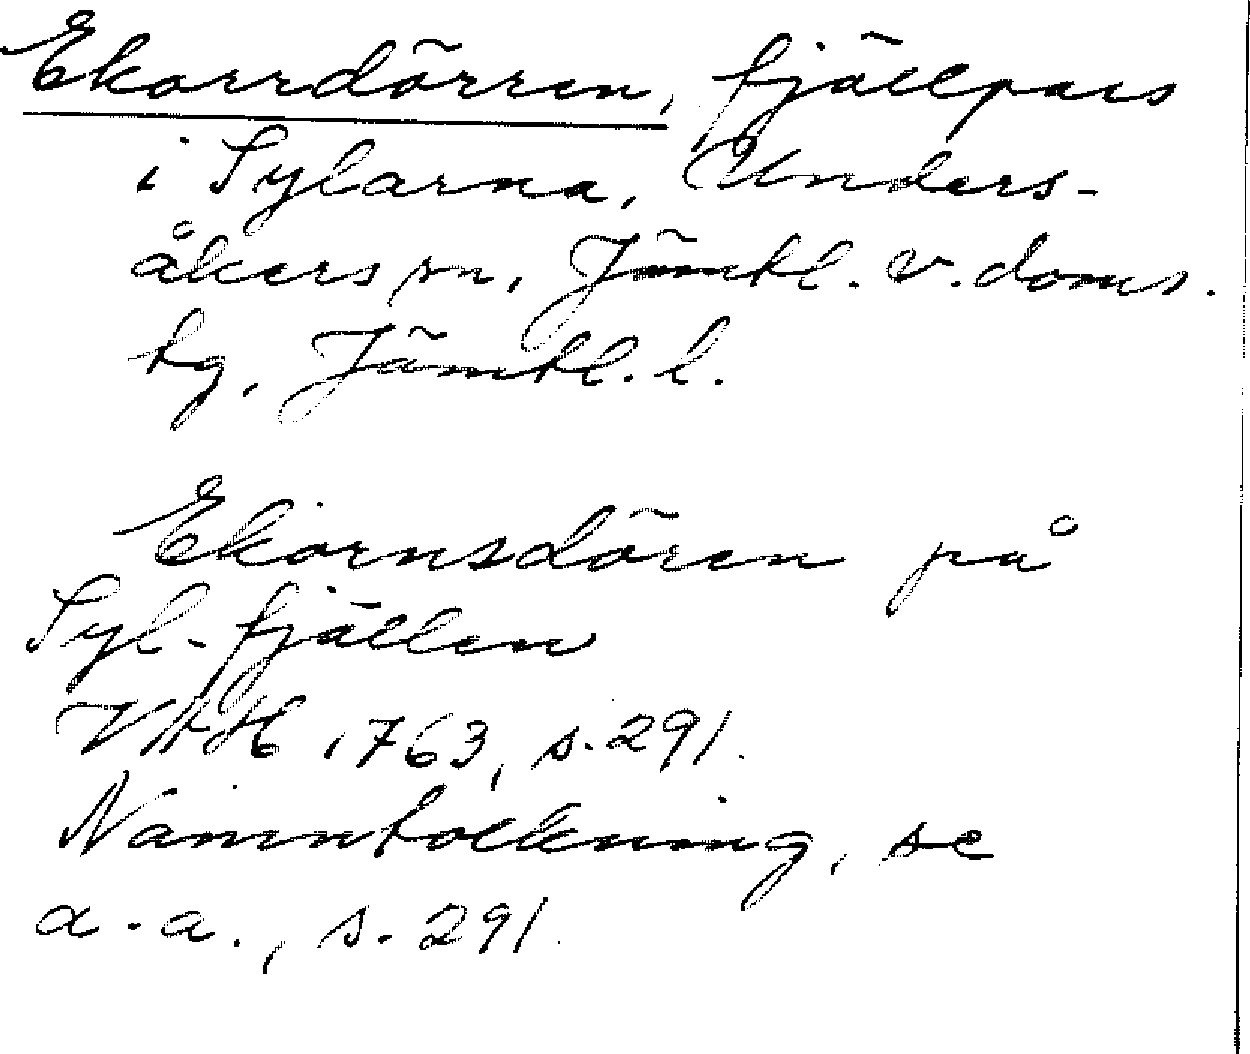 Ekorrdörren, fjällpass
i Sylarna, Unders-
åkers sn, Jämtl. v. doms.
tg, Jämtl. l.
Ekornsdören på
Syl-fjällen
VAH 1763, s. 291.
Namntolkning, se
a.a., s. 291.